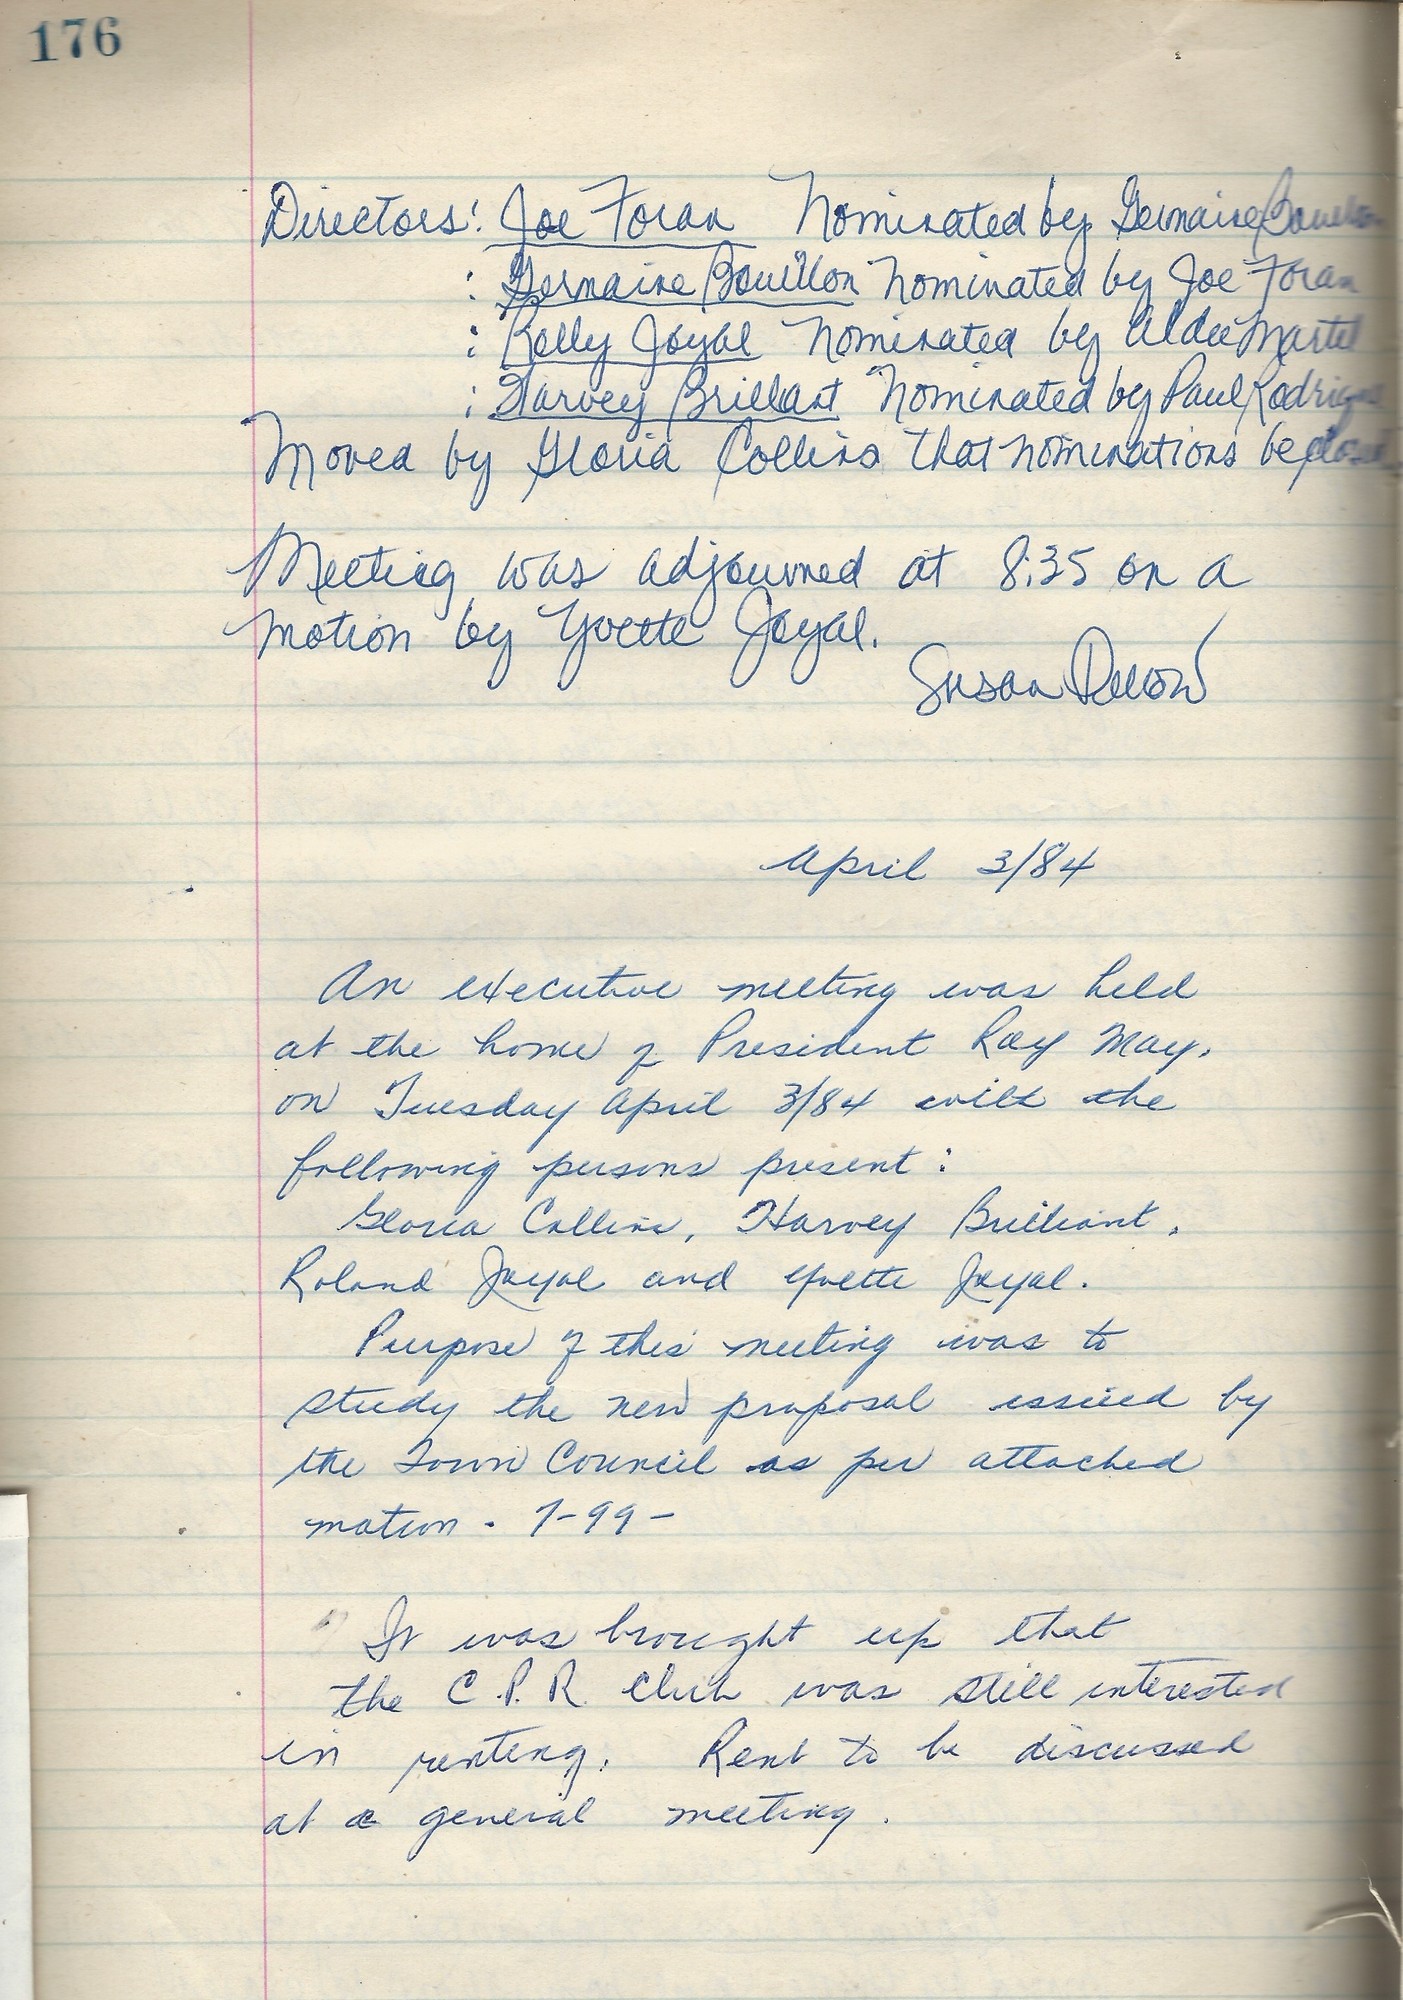 176
Directors: Joe Foran Nominated by Germaine Bouillon
: Germaine Bouillon nominated by Joe Foran
: Kelly Joyal nominated by Aldee Martel
: Harvey Brillant nominated by Paul Rodrigue
Moved by Gloria Collins that nominations be closed
Meeting was adjourned at 8:35 on a
motion by Yvette Joyal.
Susan
April 3/84
An executive meeting was held
at the home of President Ray May,
on Tuesday April 3/84 with the
following persons present:
Gloria Collins, Harvey Brilliant,
Roland Joyal and Yvette Joyal.
Purpose of this meeting was to
study the new proposal issued by
the Town Council as per attached
motion. 7-99-
" It was brought up that
the C.P.R. Club was still interested
in renting. Rent to be discussed
at a general meeting.